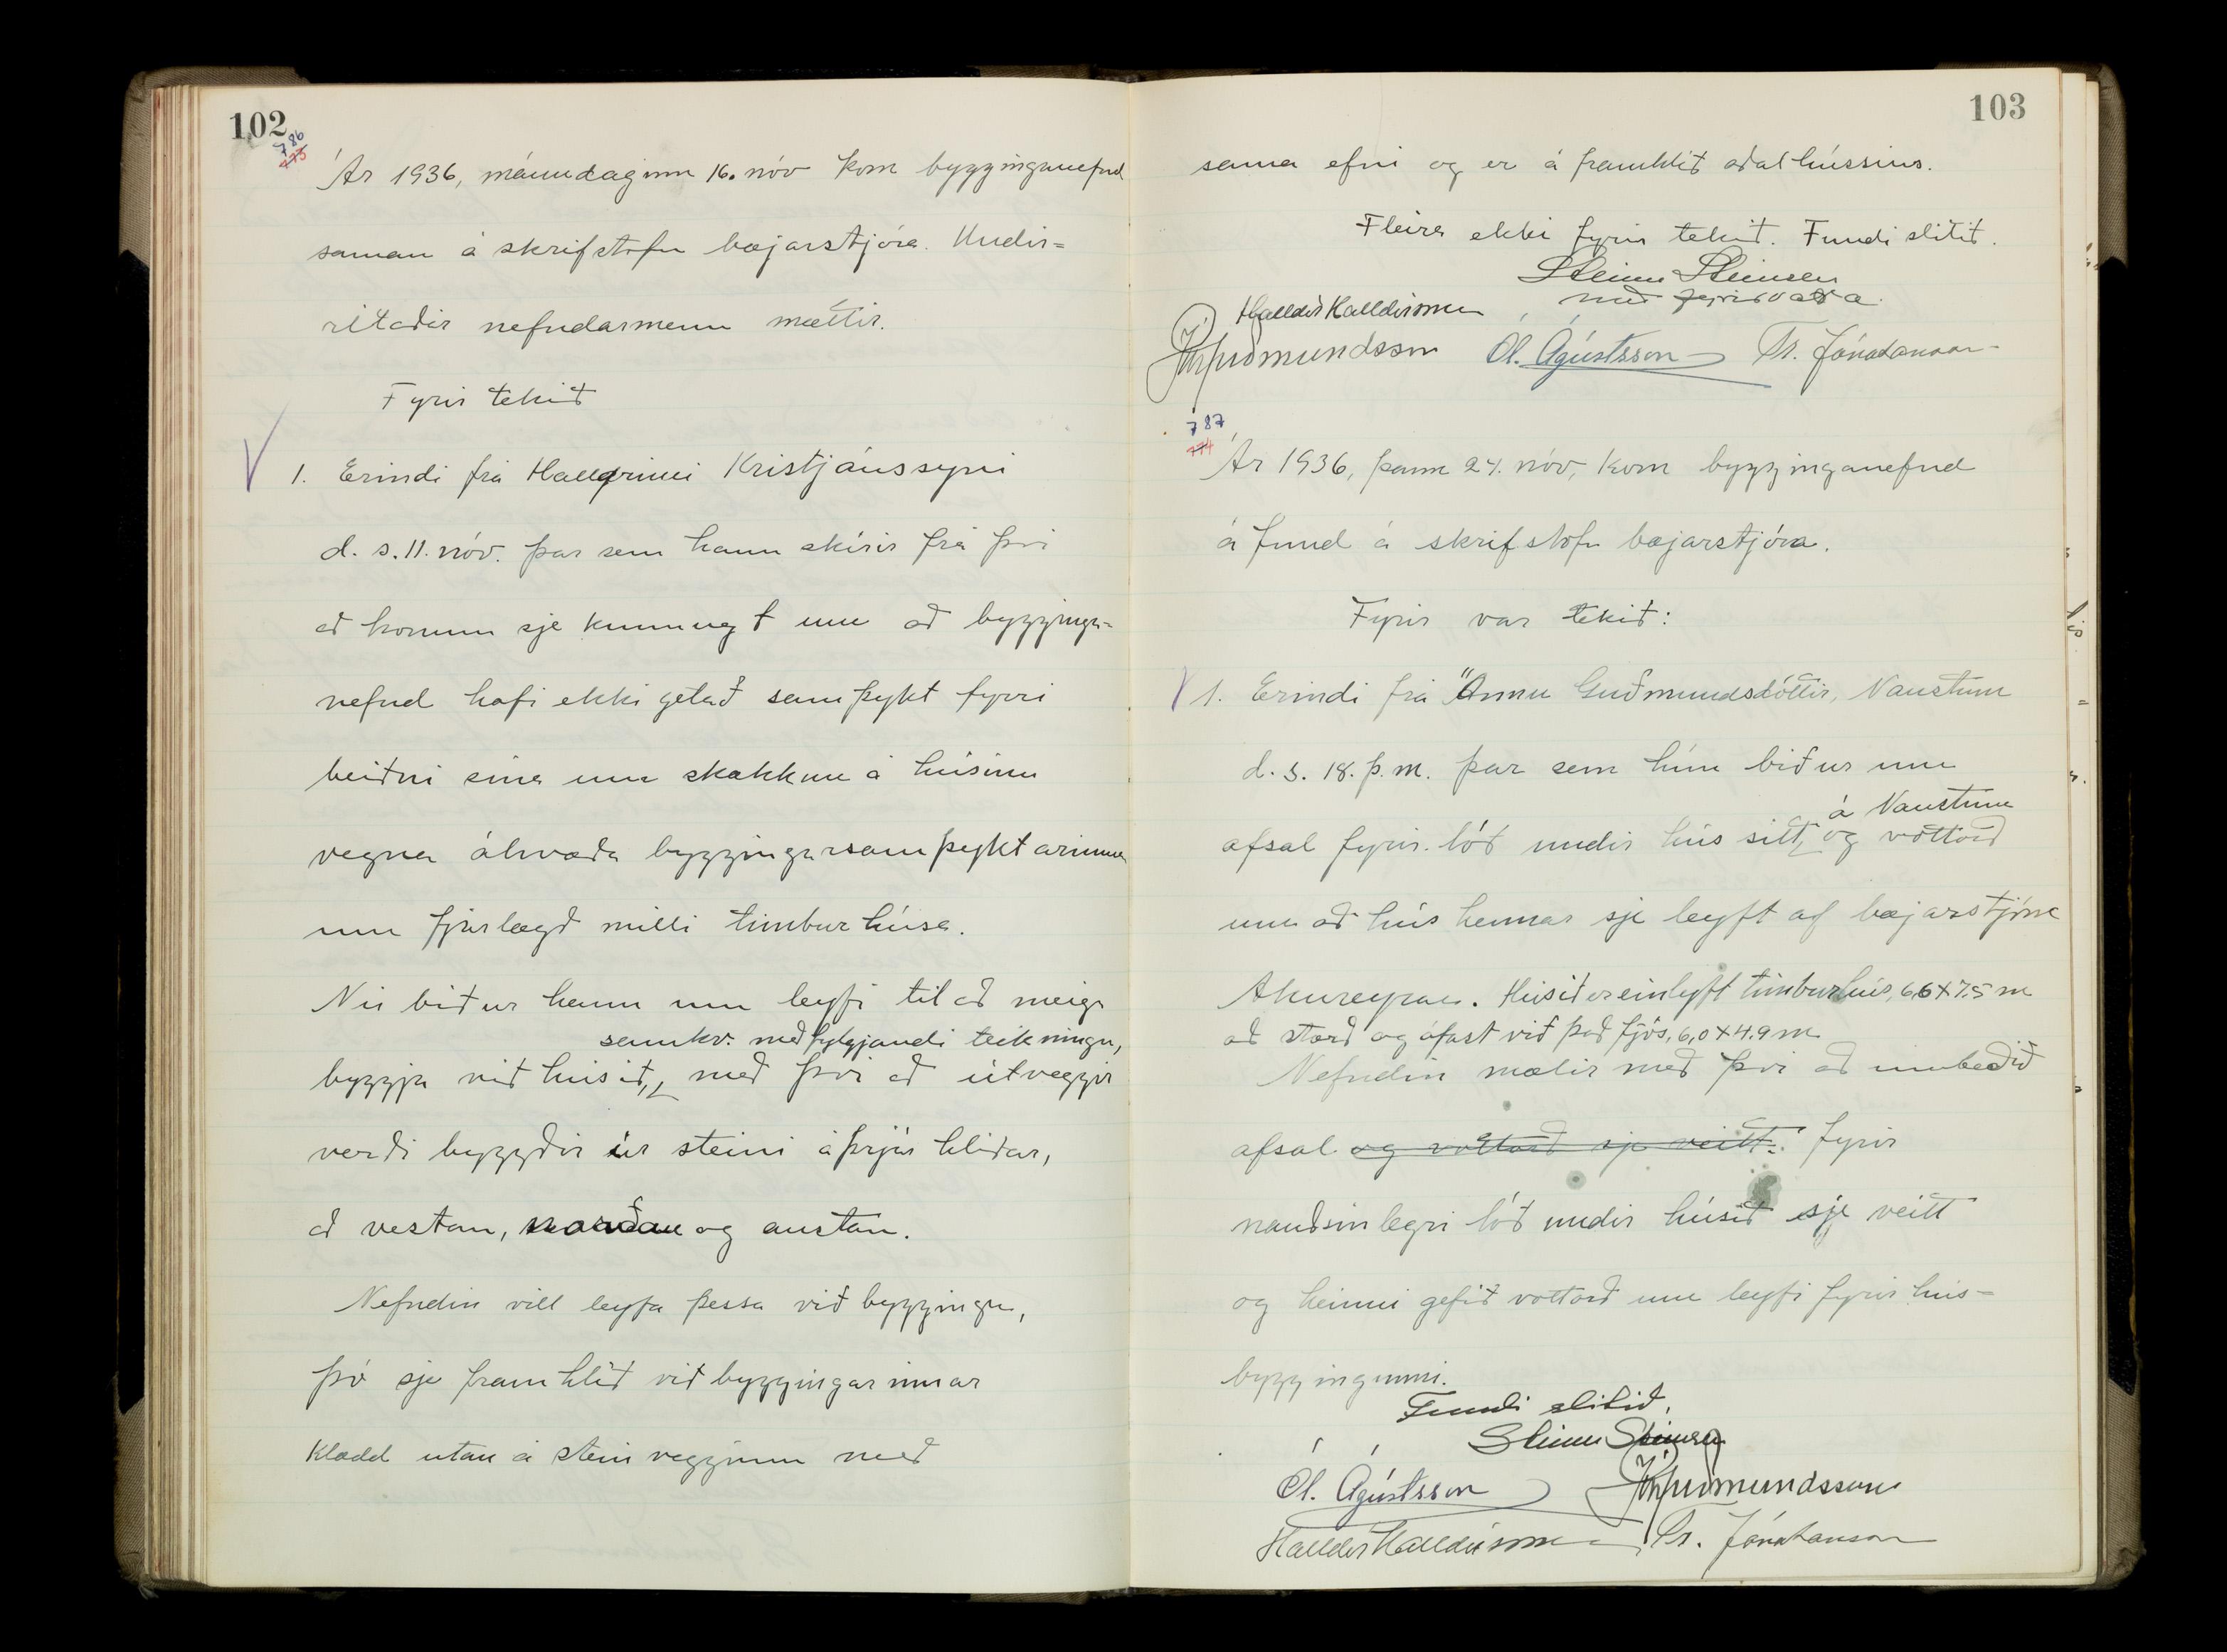 102
786
773
Ár 1936, mánudaginn 16. nóv kom bygginganefnd
saman á skrifstofu bæjarstjóra. Undir=
ritaðir nefndarmenn mættir.
Fyrir tekið
1. Erindi frá Hallgrími Kristjánssyni
d. s. 11. nóv. þar sem hann skírir frá því
að honum sje kunnugt um að bygginga=
nefnd hafi ekki getað samþykt fyrri
beiðni sína um skekkun á húsinu
vegna ákvæða byggingarsamþyktarinnar
um fjarlægð milli timburhúsa.
Nú biður hann um leyfi til að meiga
samkv. meðfylgjandi teikningu,
byggja við húsið, með því að útveggir
verði byggðir úr steini á þrjár hliðar,
að vestan, norðan og austan.
Nefndin vill leyfa þessa viðbyggingu,
þó sje framhlið viðbyggingarinnar
klædd utan á steinvegginn með
103
sama efni og er á framhlið aðalhússins.
Fleira ekki fyrir tekið. Fundi slitið.
Steinn Steinsen
með fyrirvara.
Halldór Halldórsson
Jón Guðmundsson Ól. Ágústsson Tr. Jónatansson
787
774
Ár 1936, þann 24. nóv, kom bygginganefnd
á fund á skrifstofu bæjarstjóra.
Fyrir var tekið:
1. Erindi frá Önnu Guðmundsdóttir, Naustum
d. s. 18. þ. m. þar sem hún biður um
á Naustum
afsal fyrir lóð undir hús sitt, og vottorð
um að hús hennar sje leyft af bæjarstjórn
Akureyrar. Húsið er einlyft timburhús, 6,6 x 7.5 m
að stærð og áfast við það fjós, 6,0 x 4.9 m
Nefndin mælir með því að umbeðið
afsal og vottorð sje veitt. fyrir
nauðsinlegri lóð undir húsið sje veitt
og henni gefið vottorð um leyfi fyrir hús-
byggingunni.
Fundi slitið.
Steinn Steinsen
Ól. Ágústsson Jón Guðmundsson
Halldór Halldórsson Tr. Jónatansson